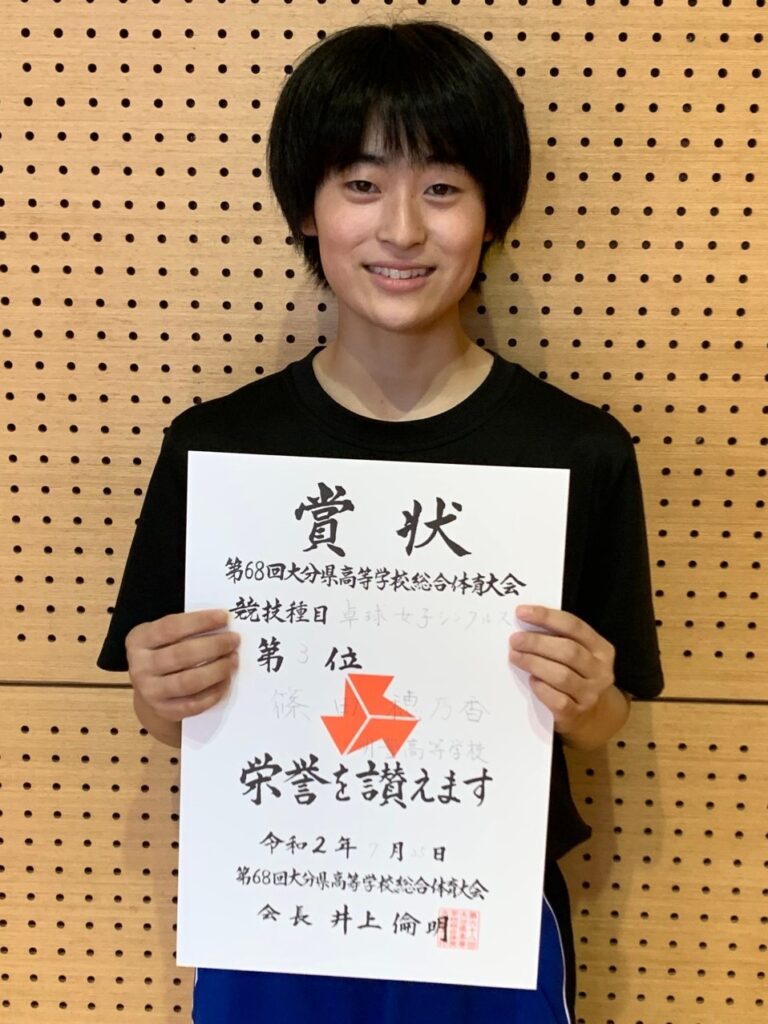 賞状
第68回大分県高等学校総合体育大会
競技種目 卓球女子シングルス
第3位
篠田穂乃香
高等学校
栄誉を讃えます
令和2年7月25日
第68回大分県高等学校総合体育大会
会長 井上倫明